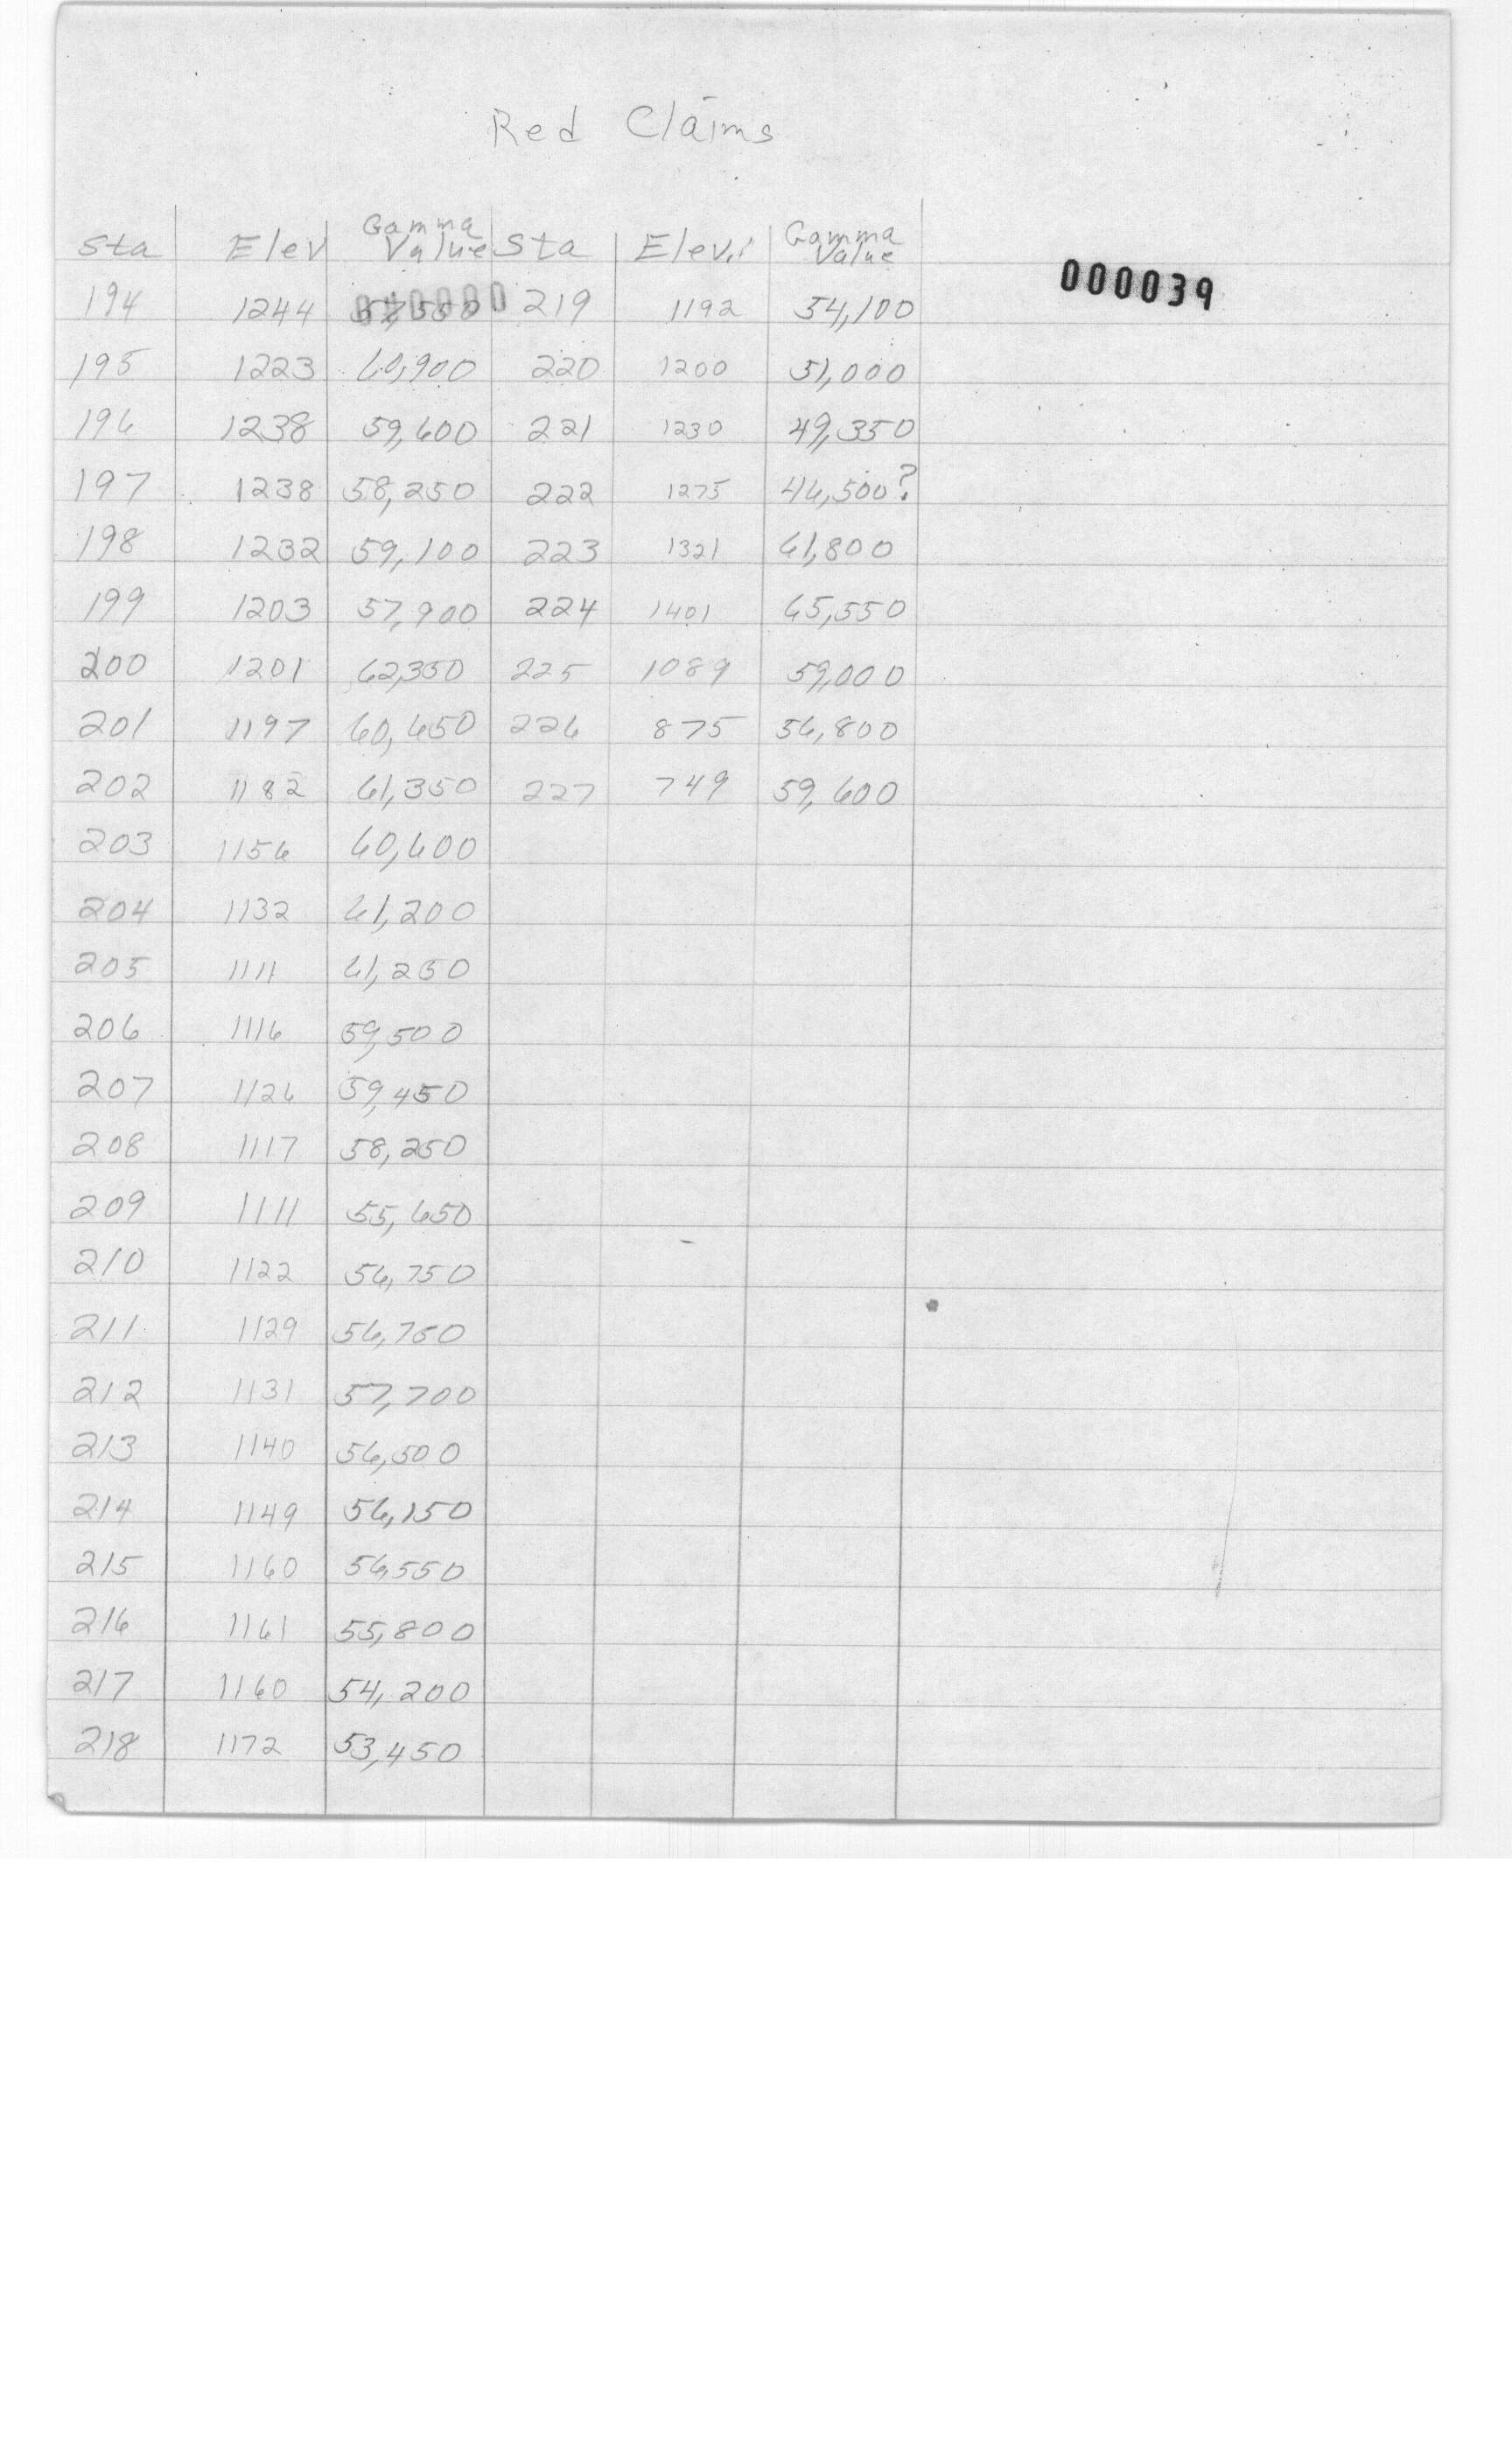 Red Claims
Sta Elev Gamma Value Sta Elev. Gamma Value
000039
194 1244 219 1192 54,100
195 1223 60,900 220 1200 51,000
196 1238 59,600 221 1230 49,350
197 1238 58,250 222 1275 46,500?
198 1232 59,100 223 1321 61,800
199 1203 57,900 224 1401 65,550
200 1201 62,350 225 1089 59,000
201 1197 60,650 226 875 56,800
202 1182 61,350 227 749 59,600
203 1156 60,600
204 1132 61,200
205 1111 61,250
206 1116 59,500
207 1126 59,450
208 1117 58,250
209 1111 55,650
210 1122 56,750
211 1129 56,750
212 1131 57,700
213 1140 56,500
214 1149 56,150
215 1160 56,550
216 1161 55,800
217 1160 54,200
218 1172 53,450